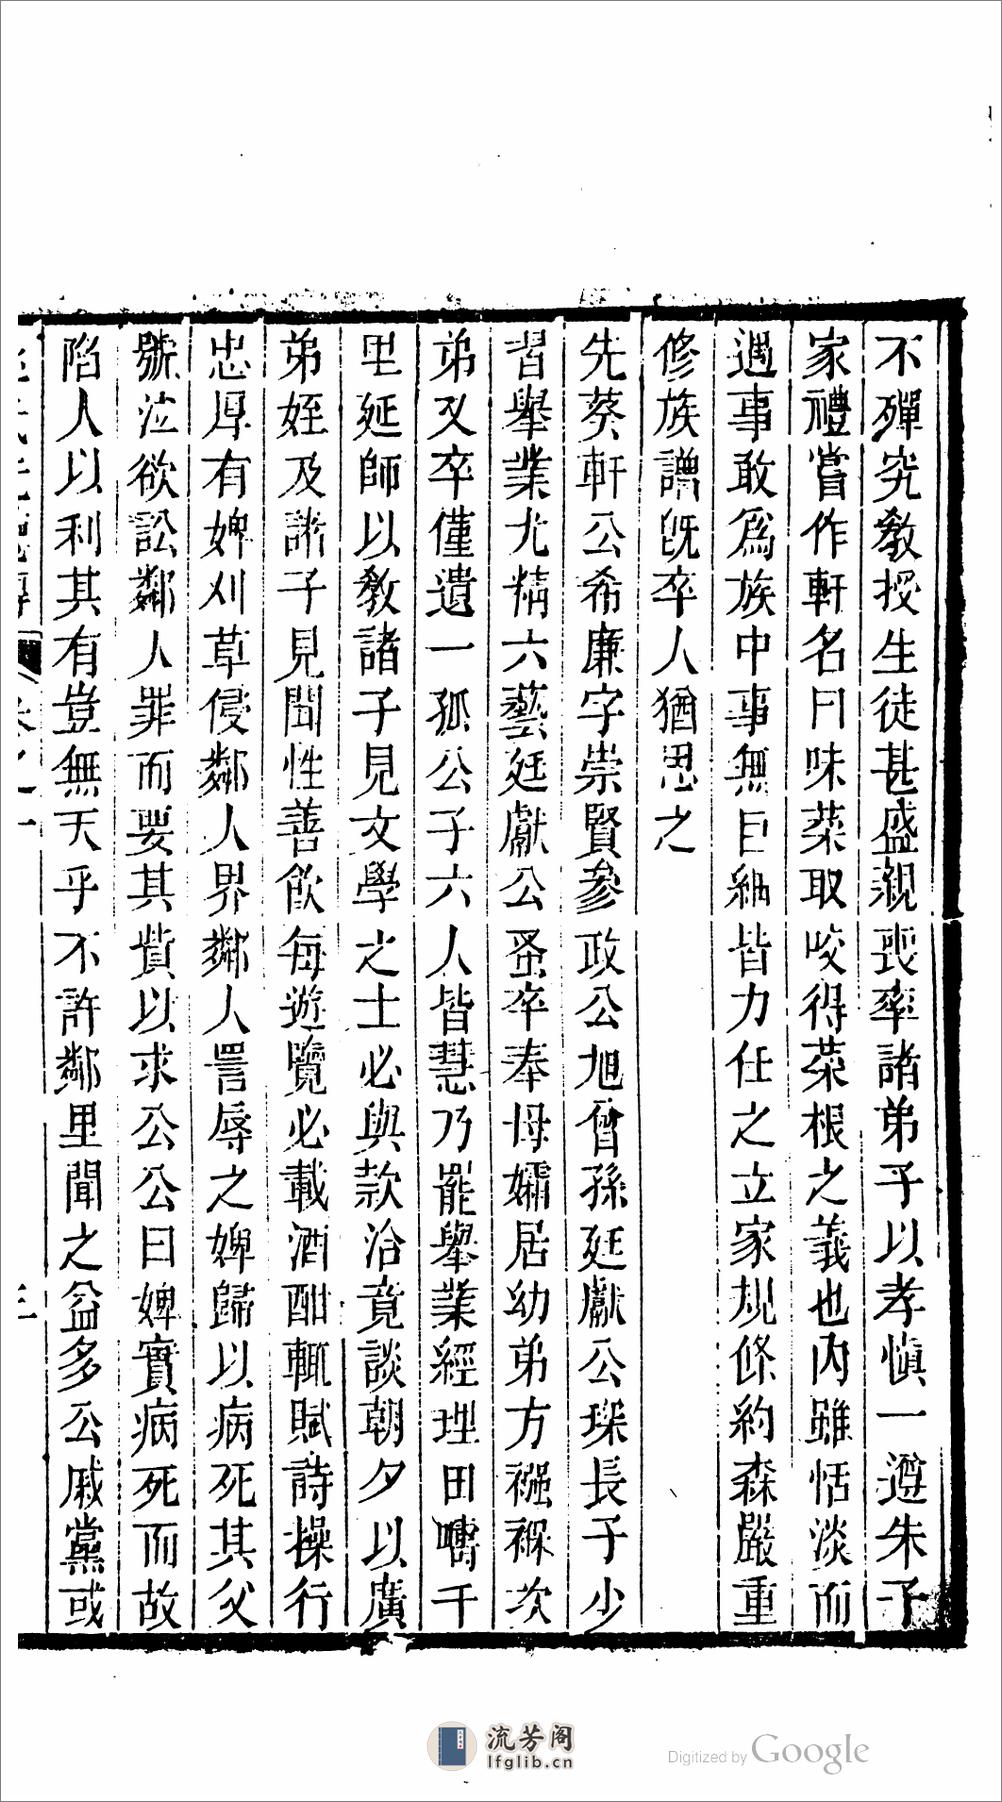 不殫究教授生徒甚盛親喪率諸弟子以孝慎一遵朱子
家禮嘗作軒名曰味菜取咬得菜根之義也內雖恬淡而
遇事敢為族中事無巨細皆力任之立家規條約森嚴重
修族譜旣卒人猶思之
先葵軒公希廉字崇賢參政公旭曾孫廷獻公琛長子少
習舉業尤精六藝廷獻公蚤卒奉母孀居幼弟方襁褓次
弟又卒僅遺一孤公子六人皆慧乃罷舉業經理田疇千
里延師以教諸子見文學之士必與款洽竟談朝夕以廣
弟姪及諸子見聞性善飲每遊覽必載酒酣輒賦詩操行
忠厚有婢刈草侵鄰人界鄰人詈辱之婢歸以病死其父
號泣欲訟鄰人罪而要其貲以求公公曰婢實病死而故
陷人以利其有豈無天乎不許鄰里聞之益多公戚黨或
卷之一
三
流芳阁
lfglib.cn
Digitized by Google